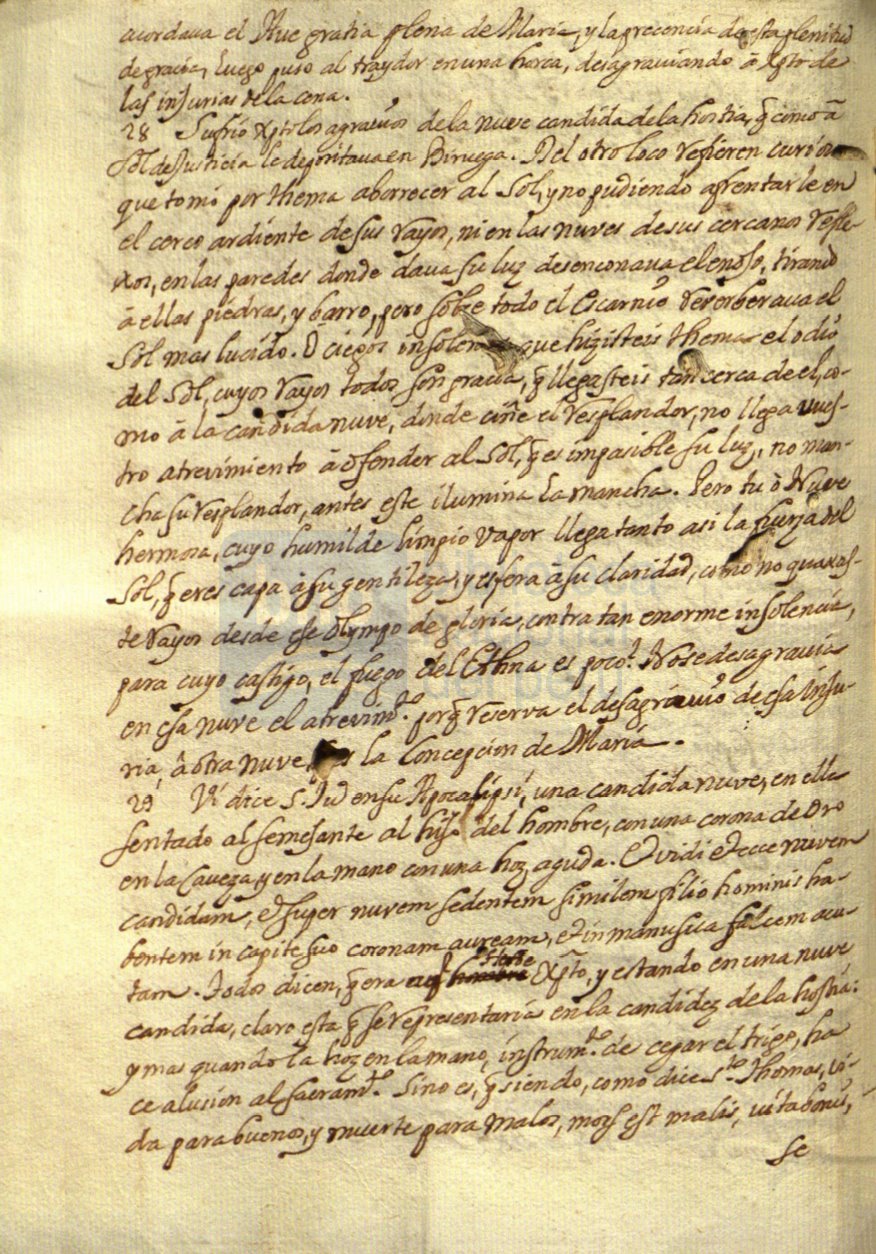 acordava el Ave gratia plena de Maria, y la precencia de esta plenitud
de gracia, luego puso al traydor en una horca, desagraviando à Xpto de
las injurias de la cena.
28 Sufrio Xpto los agravios de la nuve candida de la hostia, q̃ como à
Sol de Justicia le depositava en Biruega. Del otro loco refieren
que tomò por thema aborrecer al Sol, y no pudiendo afrentarle en
el cerco ardiente de sus rayos, ni en las nuves de sus cercanos refle-
xos, en las paredes donde dava su luz desenconava el enojo, tirando
à ellas piedras, y barro, pero sobre todo el escarnio reverberava el
Sol mas lucido. O ciegos que hizisteis thema el odio
del Sol, cuyos rayos todos son gracia, q̃ llegasteis tan cerca de el, co-
mo à la candida nuve, donde ciñe el resplandor, no llega vues-
tro atrevimiento à ofender al Sol, q̃ es impasible su luz, no man-
cha su resplandor, antes este ilumina la mancha. Pero tu ò Nuve
hermosa, cuyo humilde limpio vapor llega tanto asi la fuerza del
Sol, q̃ eres capa à su gentileza, y esfera à su claridad, como no
te rayos desde ese Olympo de gloria, contra tan enorme insolencia,
para cuyo castigo, el fuego del Ethna es poco? No se desagravia
en esa nuve el atrevimto. porq̃ reserva el desagravio de esa inju-
ria, à otra nuve, la Concepcion de Maria.
29 Vi dice S. Juº en su Apocalipsi, una candida nuve, en ella
sentado al semejante al hijo del hombre, con una corona de oro
en la Caveza, y en la mano con una hoz aguda. Et vidi et ecce nuvem
candidam, et super nuvem sedentem similem filio hominis ha-
bentem in capite suo coronam auream, et in manu sua falcem acu-
tam. Todos dicen, q̃ era este Xpto, y estando en una nuve
candida, claro esta q̃ se representaria en la candidez de la hostia:
y mas quando la hoz en la mano, instrumto. de cegar el trigo, ha
ce alusion al sacramto. Sino es, q̃ siendo, como dice Sto. Thomas, vi-
da para buenos, y muerte para malos, mors est malis, vita bonis,
se